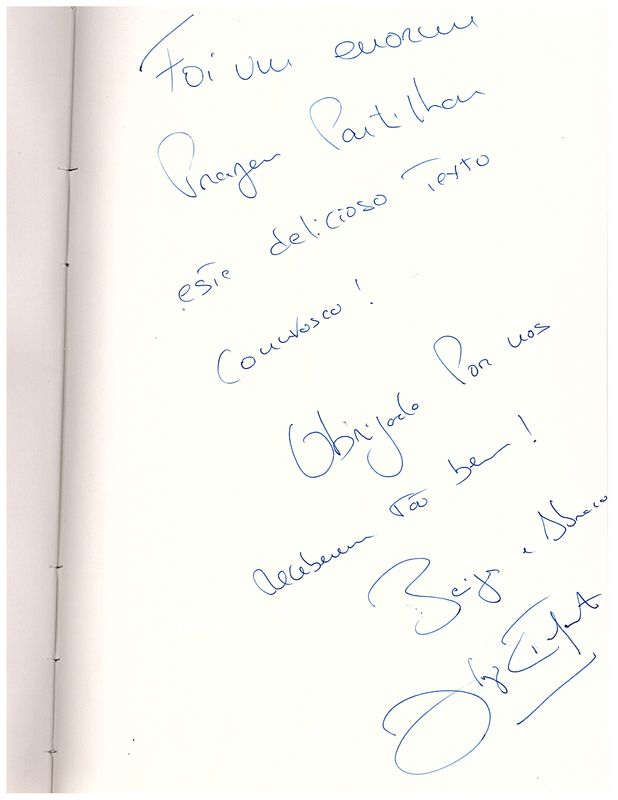 Foi um enorme
Prazer Partilhar
este delicioso Texto
Convosco!
Obrigado Por nos
receberem tão bem!
Beijo e Abraço
Diogo Infante